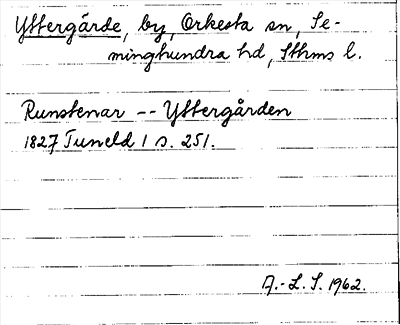 Yttergärde, by, Orkesta sn, Se-
minghundra hd, Sthms l.
Runstenar -- Yttergården
1827 Tuneld 1 s. 251.
A.-L. S. 1962.